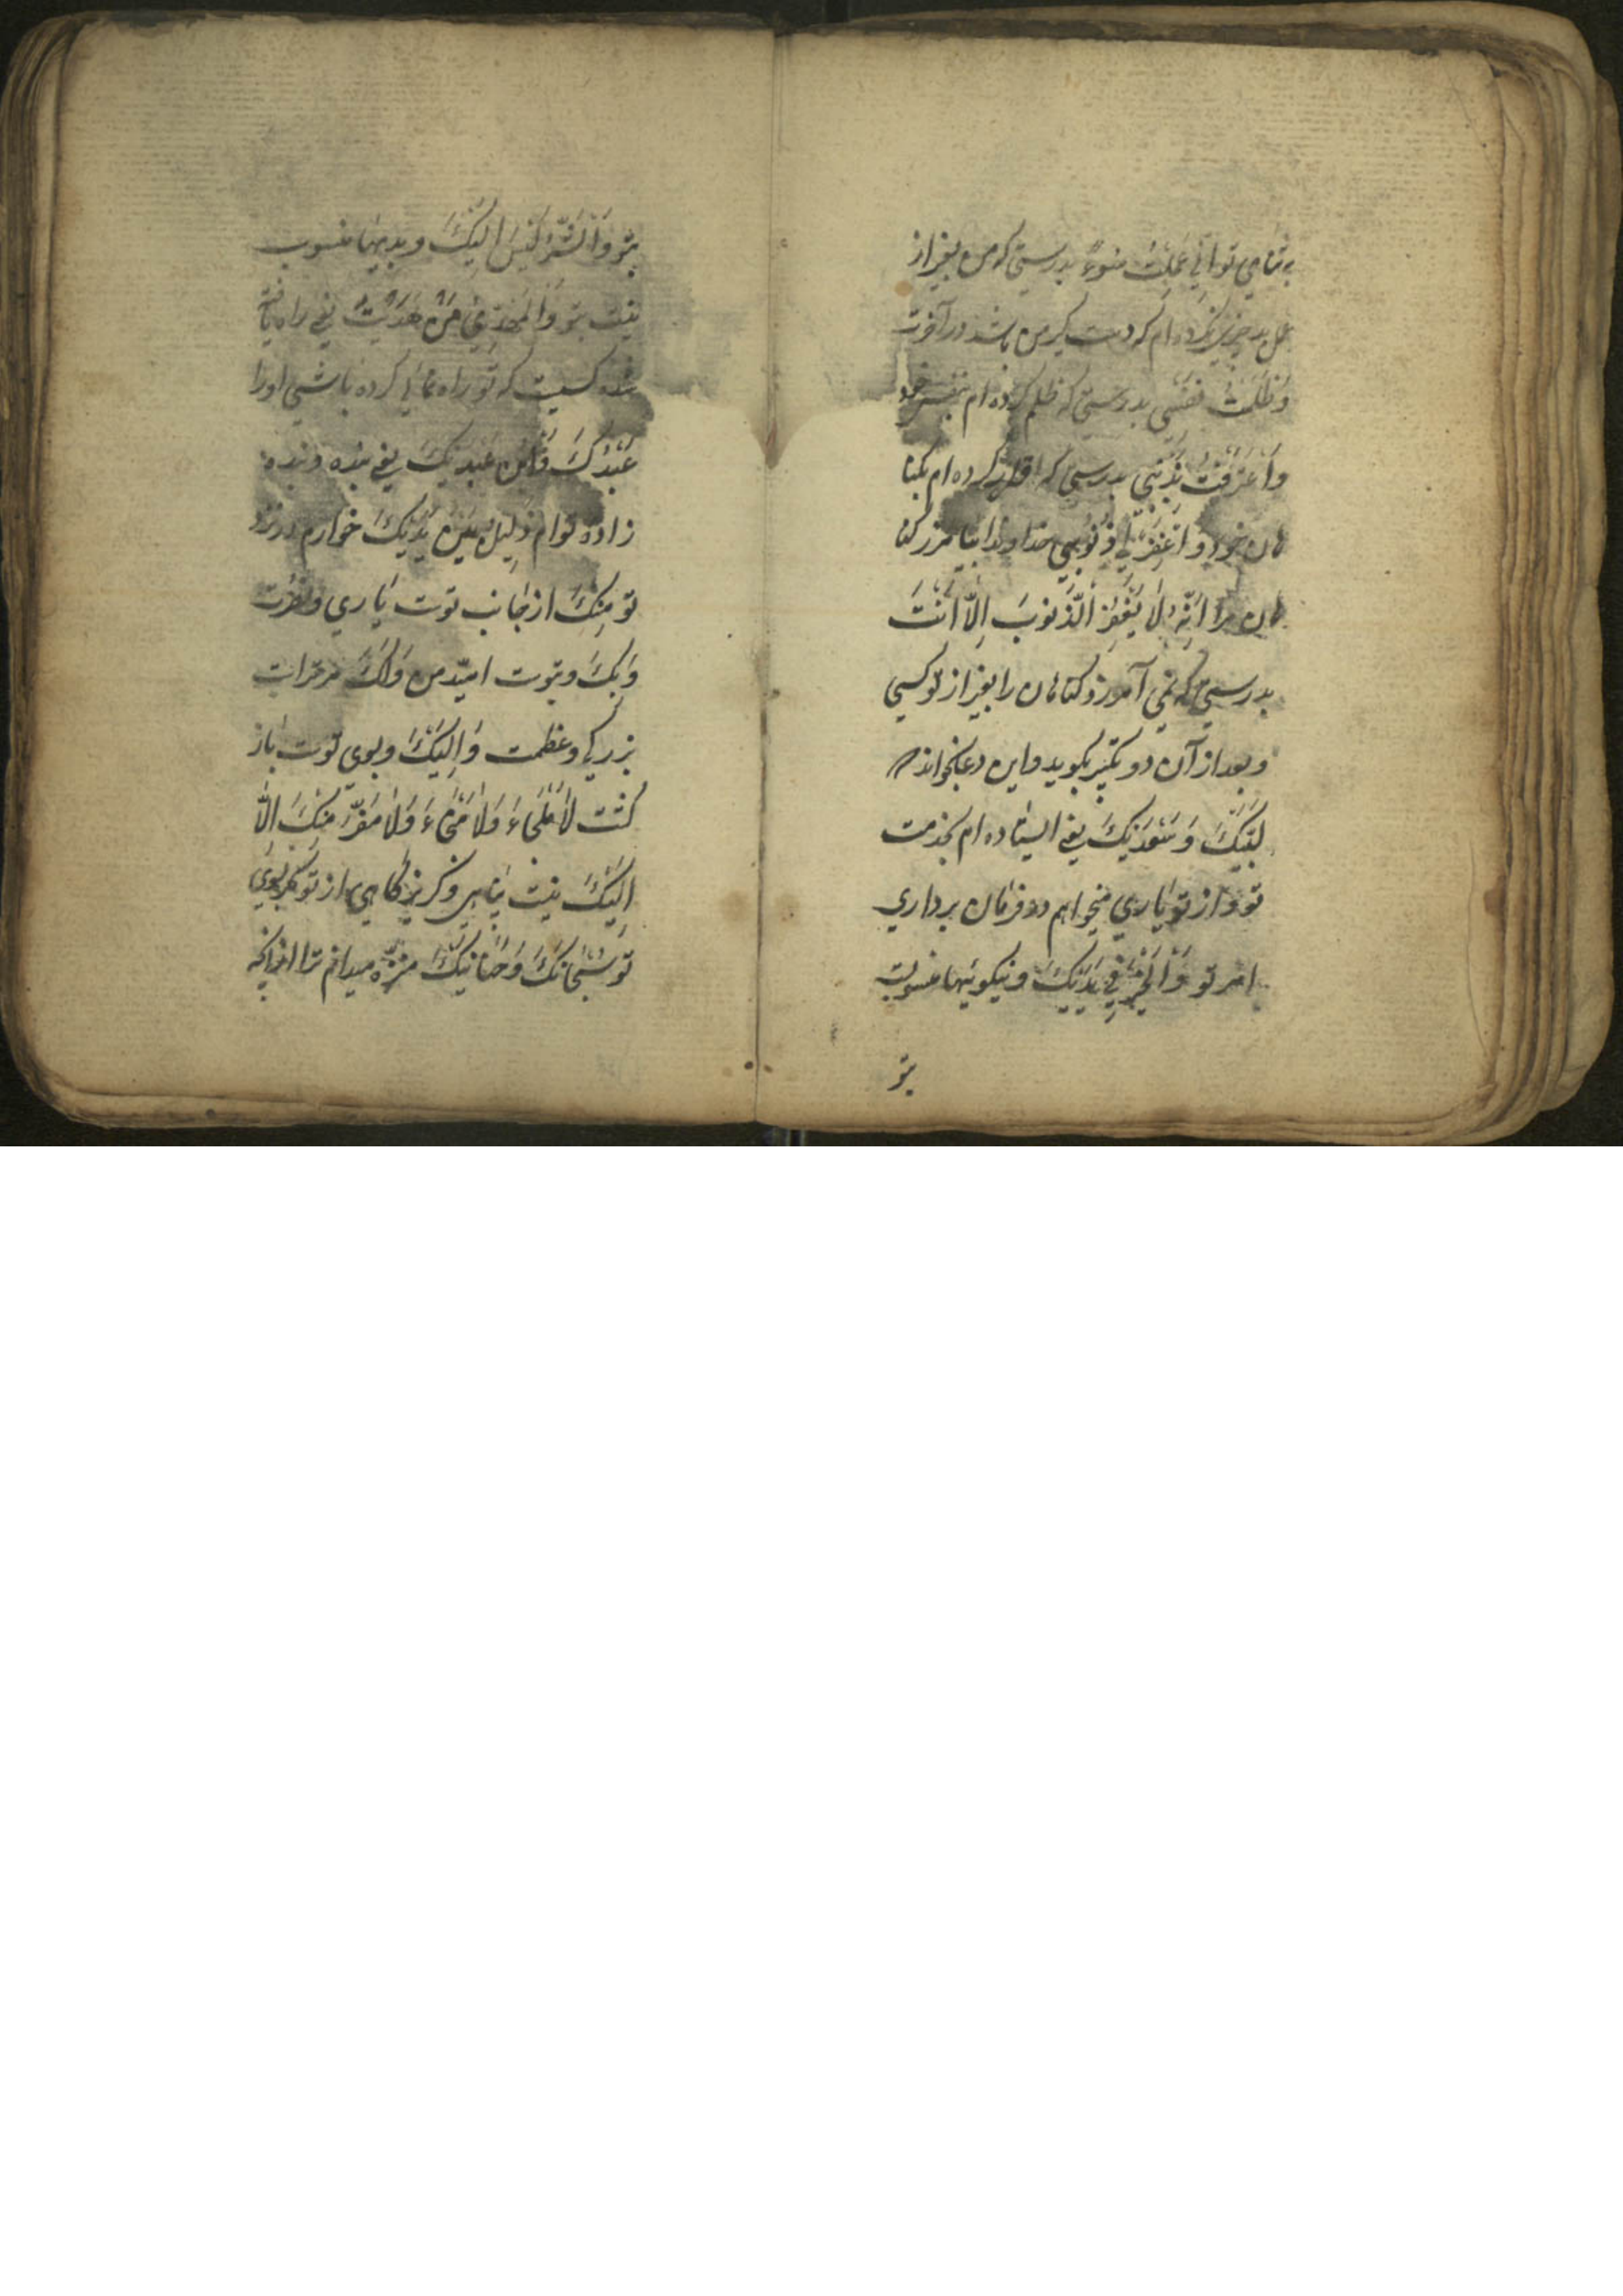 بتمامی تو اِنّی عَمِلْتُ سُوءً بدرستی که من بغیر از
عمل بد چیزی نکرده ام که دست گیر من باشد در آخرت
وَ ظَلَمْتُ نَفْسی بدرستی که ظلم کرده ام بنفس خود
وَ اَعْتَرَفْتُ بِذَنْبی بدرستی که اقرار کرده ام بکنا
هان خود و اغْفِرْ لی ذُنُوبی خداوندا بیامرز کنا
هان مرا اِنَّهُ لا یَغْفِرُ الذُّنوبَ اِلاّ اَنْتَ
بدرستی که نمی آمرزد کناهان را بغیر از تو کسی
و بعد از آن دو تکبیر بکوید و این دعا بخواند
لَبَّیْکَ وَ سَعْدَیْکَ یعنی ایستاده ام بخدمت
تو و از تو یاری میخواهم در فرمان برداری
امر تو وَ الْخَیْرُ فی یَدَیْکَ و نیکوئیها منسوبست
بتو
بتو وَ الشَّرُّ لَیْسَ اِلَیْکَ و بدیها منسوب
نیست بتو وَ الْمَهْدِیُّ مَنْ هَدَیْتَ یعنی راه یافته
شده کسیست که تو راه نمائی کرده باشی او را
عَبْدُکَ وَ ابْنُ عَبْدَیْکَ یعنی بنده و بنده
زاده توام ذَلِیلٌ بَیْنَ یَدَیْکَ خوارم در نزد
تو مِنْکَ از جانب توست یاری و نصرت
وَ بِکَ و بتوست امیّد من وَ لَکَ مر تراست
بزرکی و عظمت وَ اِلَیْکَ و بسوی توست باز
کشت لا مَلْجَاءَ وَ لا مَنْجاءَ وَ لا مَفَرَّ مِنْکَ اِلاّ
اِلَیْکَ نیست پناهی و کریزکاهی از تو مکر بسوی
تو سُبْحانَکَ وَ حَنانَیْکَ منزّه میدانم ترا از آنکه